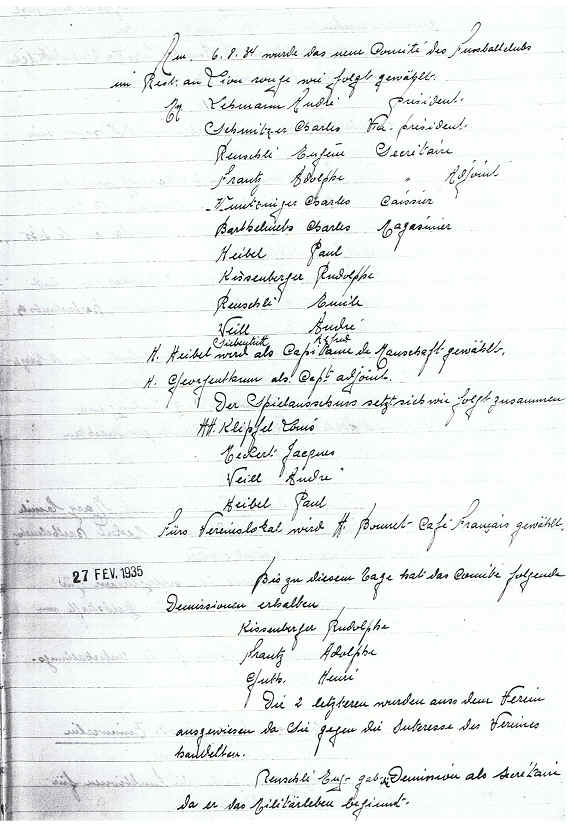 Am. 6.8.34 wurde das neue Comité des Fussballclubs
im Rest. au Lion rouge wie folgt gewählt.
Lehmann André président.
Schnitzer Charles Vice. président.
Reuschlé Eugène Secrétaire
Frantz Adolphe " Adjoint
Kuntzinger Charles Caissier
Barthelmebs Charles Magasinier
Heibel Paul
Kissenberger Rudolphe
Reuschlé Emile
Veill André
Siebenlist Alfred
H. Heibel wird als Capitaine de Manschaft gewählt.
H. Georgenthum als Capt. adjoint.
Der Spielausschuss setzt sich wie folgt zusammen
HH Klipfel Louis
Meckert Jacques
Veill André
Heibel Paul
Fürs Vereinslokal wird H. Bonnet Café Français gewählt.
27 FEV. 1935
Bis zu diesem Tage hat das Comité folgende
Demissionen erhalten
Kissenberger Rudolphe
Frantz Adolphe
Guth. Henri
Die 2 letzteren wurden auss dem Verein
ausgewiesen da Sie gegen die Interesse des Vereines
handelten.
Reuschlé Eug. gab Demission als Secrétaire
da er das Militärleben beginnt.